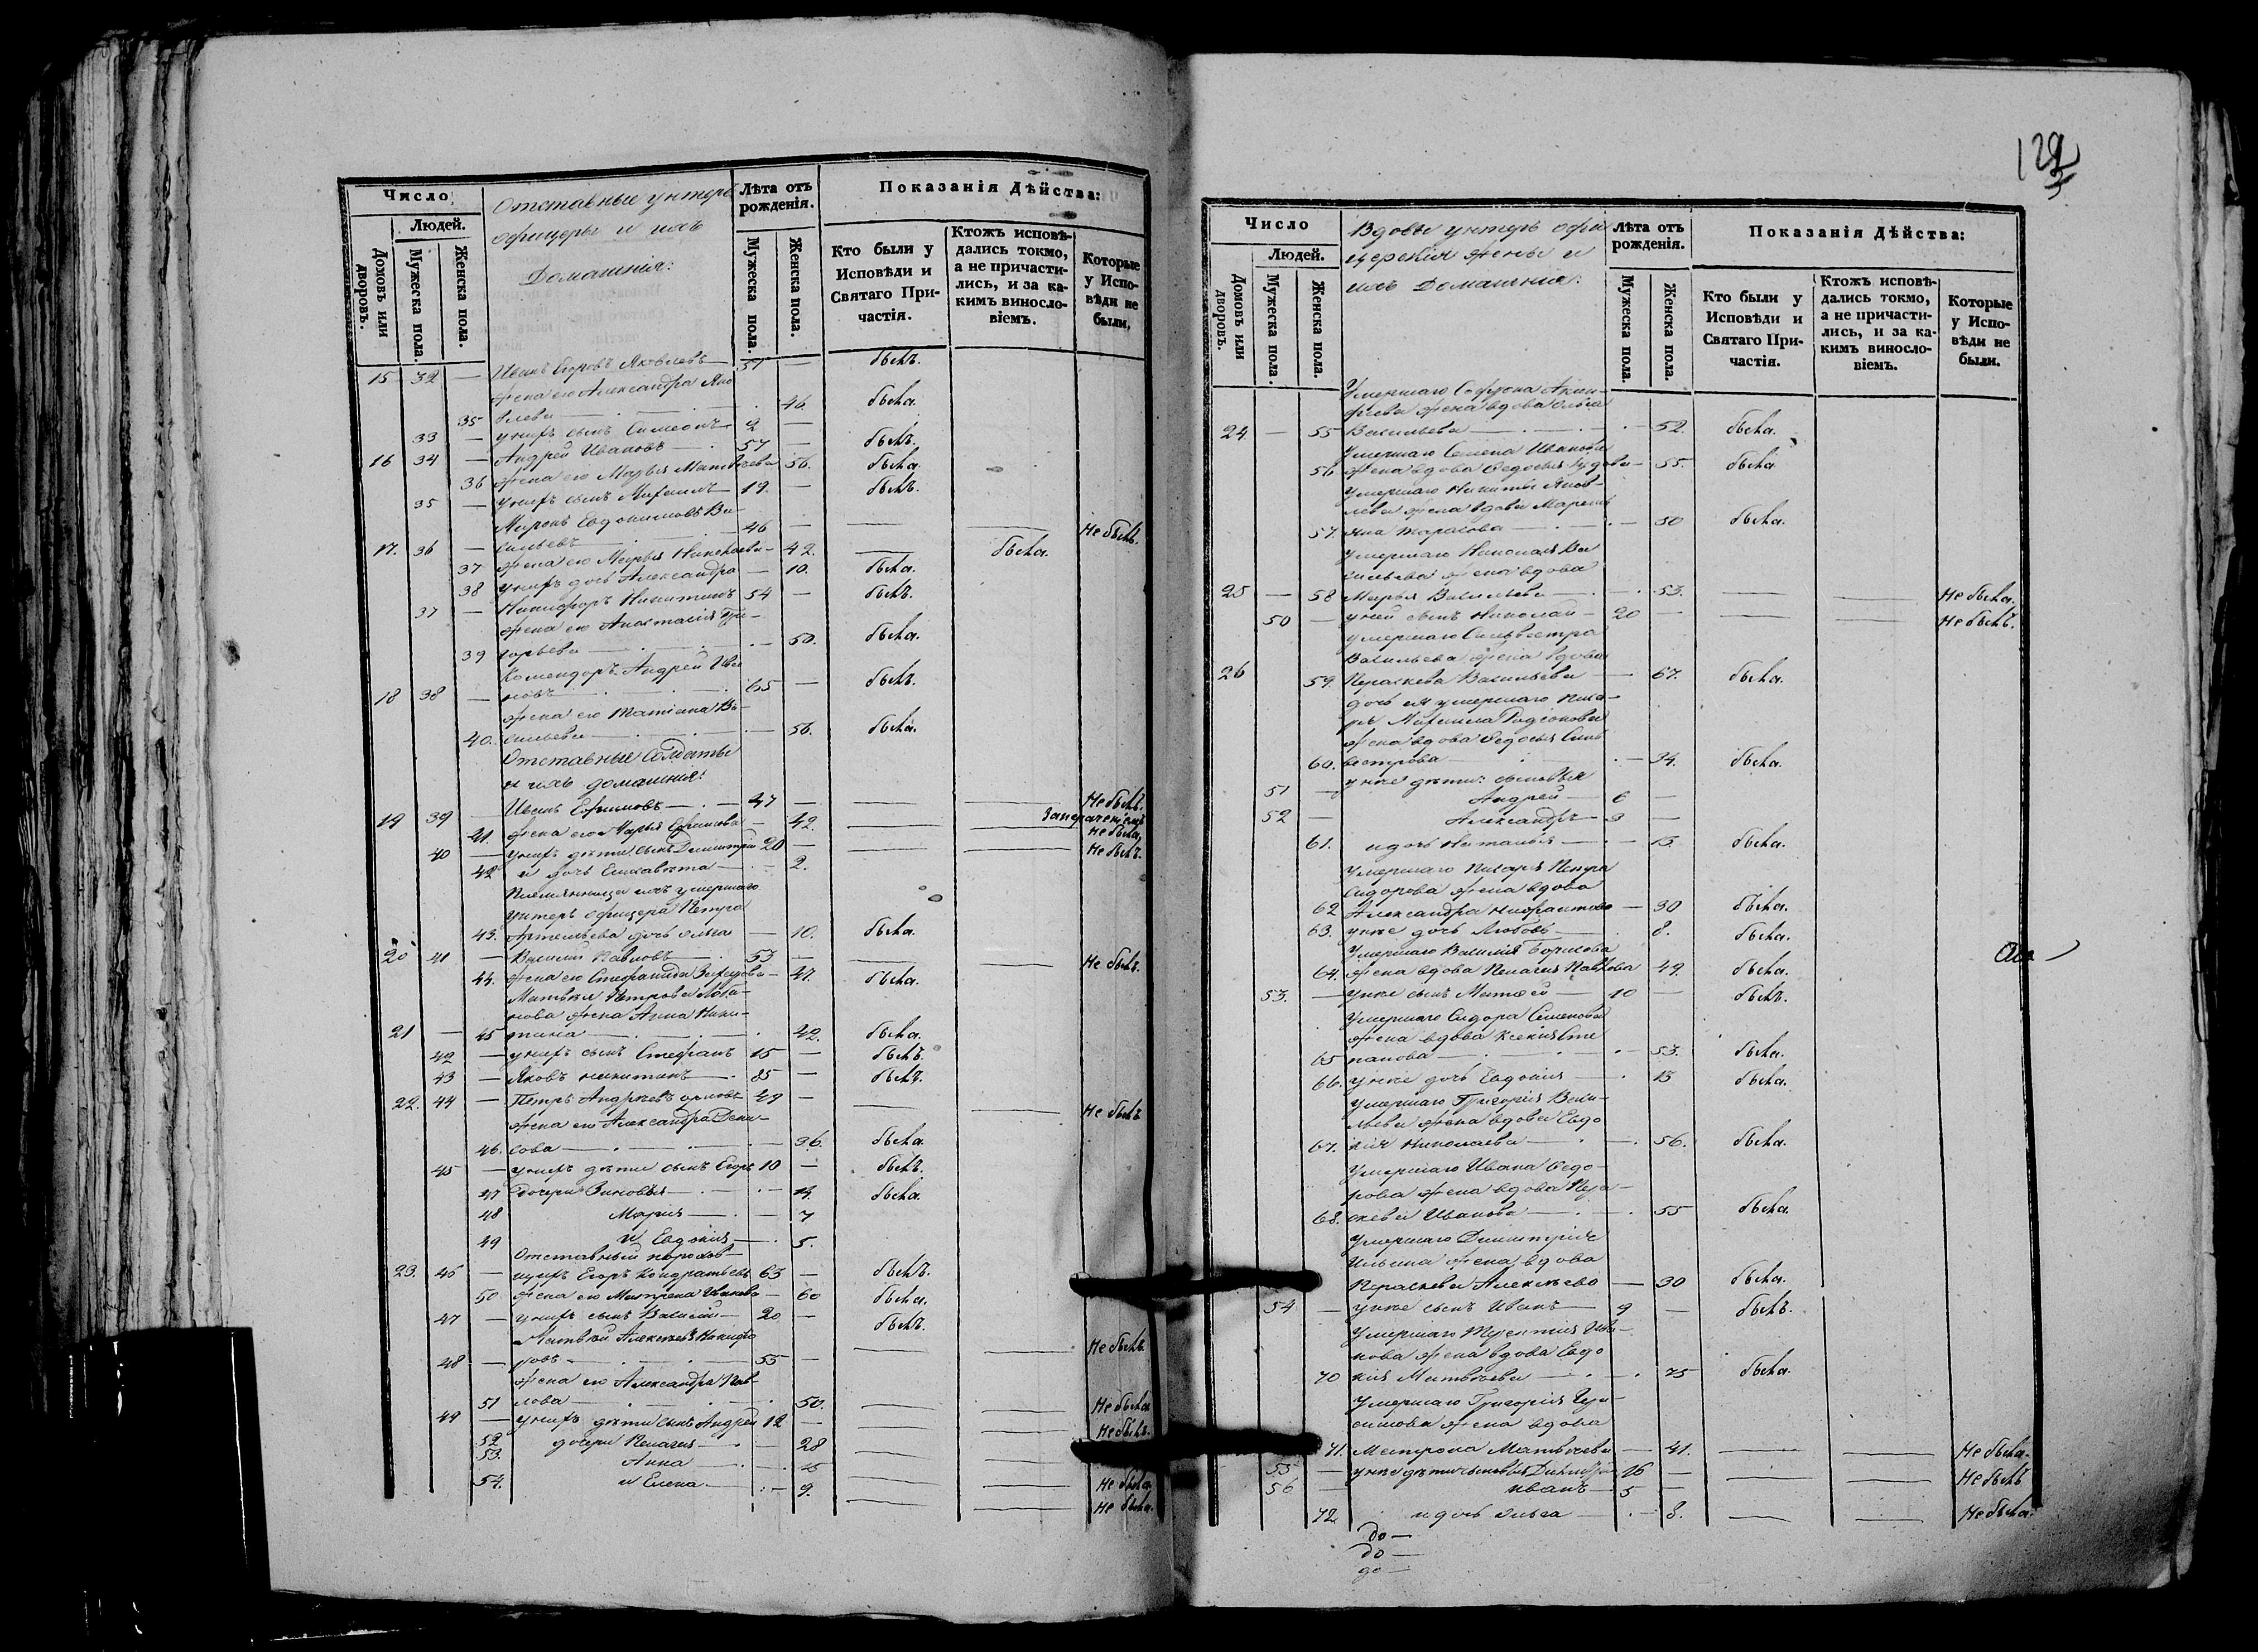 Число
Людей.
Домовъ или дворовъ.
Мужеска пола.
Женска пола.
Отставные унтеръ
офицеры и ихъ
Домашнія:
Лѣта отъ рожденія.
Мужеска пола.
Женска пола.
Показанія Дѣйства:
Кто были у Исповѣди и Святаго Причастія.
Ктожъ исповѣдались токмо, а не причастились, и за какимъ винословіемъ.
Которые у Исповѣди не были.
15 32 — Иванъ Егоровъ Яковлевъ — 51 — былъ.
жена его Александра Яко
35 влева — 46. была.
33 — у нихъ сынъ Симеонъ 2 —
16 34 — Андрей Ивановъ — 57 — былъ.
36 жена его Марья Матвѣева 56. была.
35 — у нихъ сынъ Михаилъ 19. — былъ.
Миронъ Евдокимовъ Ва-
17. 36 — сильевъ 46 — — — Не былъ.
37 жена его Марья Николаева — 42. — была.
38 у нихъ дочь Александра — 10. была.
37 — Никифоръ Никитинъ 54 — былъ.
жена его Анастасія Гри-
39 горьева — 50. была.
Комендоръ Андрей Ива
18 38 — новъ — 65 — былъ.
жена его Татіана Ва-
40. сильева — 56. была.
Отставные Солдаты
и ихъ домашнія:
19 39 — Иванъ Ефимовъ — 47 — — — Не былъ.
41. жена его Марья Ефимова — 42. — — не была,
40 — у нихъ дѣти сынъ Димитрій 20 — — — Не былъ.
42 и дочь Елисавета — 2.
Племянница ихъ умершаго
Унтеръ офицера Петра
43. Артемьева дочь Ольга — 10. была.
20 41 — Василій Павловъ — 53 — — — Не былъ.
44. жена его Стефанида — 41. была.
Матвѣя Петрова Лоба-
нова жена Анна Ники-
21 — 45 тина — 42. была.
42 — у нихъ сынъ Стефанъ 15 — былъ.
43 — Яковъ никитинъ — 85 — былъ.
22. 44 — Петръ Андреевъ орловъ 49 — — — Не былъ
жена его Александра Дени-
46. сова — 36. была.
45 — у нихъ дѣти сынъ Егоръ 10 — былъ.
47 Дочери Зиновья — 14. была.
48 Марія — 7
49 и Евдокія — 5.
Отставный порохов-
23. 46 — щикъ Егоръ Кондратьевъ 63 — былъ.
50 жена его Матрена Иванова — 60 была.
47 — у нихъ сынъ Василій — 20 — былъ.
Матвѣй Алексѣевъ Никифо
48 — ровъ — 55 — — — Не былъ.
жена его Александра Пав-
51 лова — 50. — — Не была
49 — у нихъ дѣти сынъ Андрей 12 — — — Не былъ.
52 дочери Пелагія — 28
53. Анна — 15 — — Не была
54. и Елена — 9. — — Не была.
129
Число
Людей.
Домовъ или дворовъ.
Мужеска пола.
Женска пола.
Вдовы унтеръ офи
церскія жены и
ихъ Домашнія:
Лѣта отъ рожденія.
Мужеска пола.
Женска пола.
Показанія Дѣйства:
Кто были у Исповѣди и Святаго Причастія.
Ктожъ исповѣдались токмо, а не причастились, и за какимъ винословіемъ.
Которые у Исповѣди не были.
Умершаго Софрона Акин-
фіева жена вдова Ольга
24. — 55 Васильева — 52. была.
Умершаго Семена Иванова
56 жена вдова Ѳедосья — 55. была
Умершаго Никиты Яков-
лева жена вдова Марем
57. яна Тарасова — 50 была.
Умершаго Николая Ва
сильева жена вдова
25 — 58 Марья Васильева — 53. — — Не была.
50 — у ней сынъ Николай — 20 — — — Не былъ.
умершаго Сильвестра
Васильева жена вдова
26 59. Параскева Васильева — 67. была.
дочь ея умершаго писа-
ря Михаила Родіонова
жена вдова Ѳедосья Силь
60. вестрова — 34. была.
51 — у нее дѣти: сыновья
Андрей — 6 —
52 — Александръ — 3 —
61. и дочь Наталья — 13. была.
Умершаго Писаря Петра
Сидорова жена вдова
62 Александра — 30 была.
63. у нее дочь Любовь — 8. была.
Умершаго Василія Борисова
64. жена вдова Пелагея Павлова 49. была.
53. — у нее сынъ Матвѣй — 10 — былъ.
Умершаго Сидора Семенова
жена вдова Ксенія Сте
65 панова — 53. была.
66. у нее дочь Евдокія — 13 была.
Умершаго Григорія Васи-
льева жена вдова Евдо
67. кія Николаева — 56. была.
Умершаго Ивана Ѳедо-
рова жена вдова Пара-
68. скева Иванова — 55 была.
Умершаго Димитрія
Ильина жена вдова
Параскева Алексѣева — 30 была.
54 — у нее сынъ Иванъ — 9 — былъ.
Умершаго Терентія Ива-
нова жена вдова Евдо
70 кія Матвѣева — 75 была.
Умершаго Григорія Гера-
симова жена вдова
71. Матрона Матвѣева — 41. — — Не была.
55 — у нее дѣти сыновья Димитрій 16 — — — Не былъ
56 — иванъ — 5 —
72 и дочь Ольга — 8. — — Не была.
до —
до —
до —